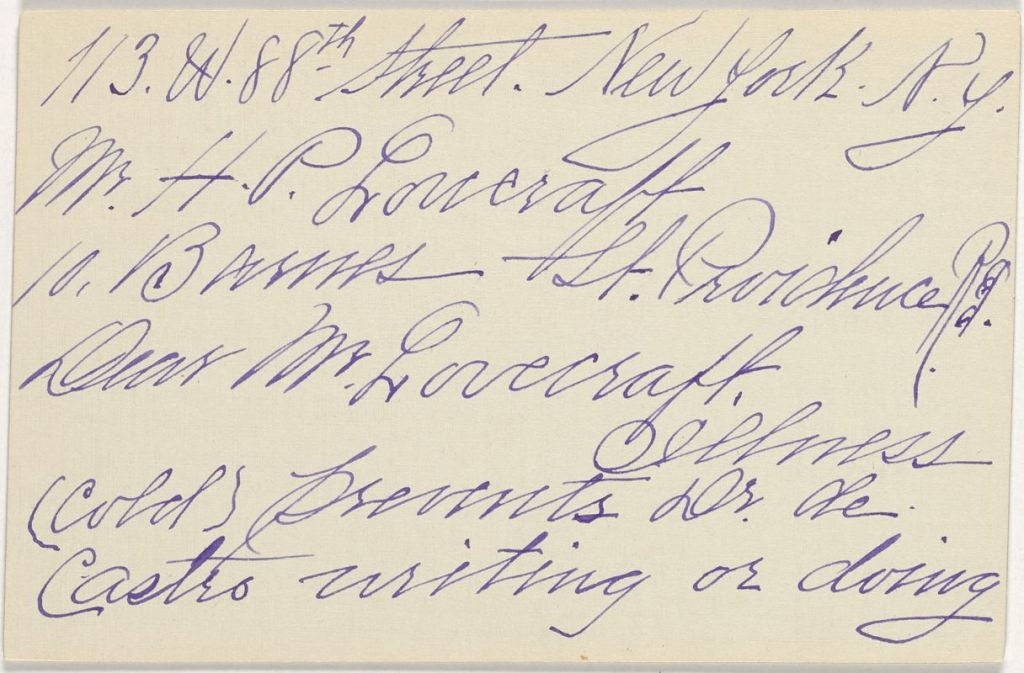 113. W. 88th Street. New York. N. Y.
Mr. H. P. Lovecraft
10. Barnes St. Providence
Dear Mr. Lovecraft,
Illness
(Cold) prevents Dr. de
Castro writing or doing